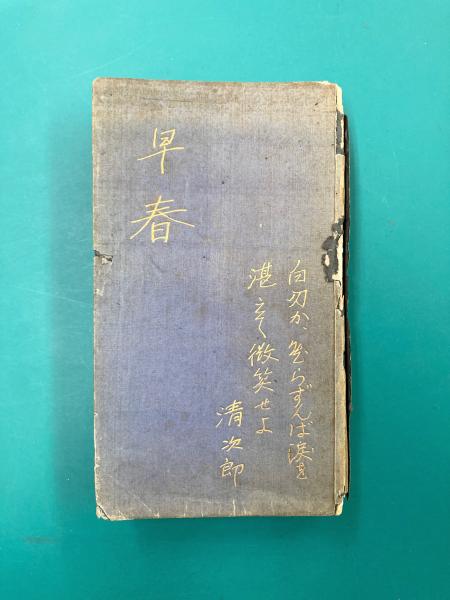 早春
白刃か、然らずんば涙を
湛えて微笑せよ
清次郎